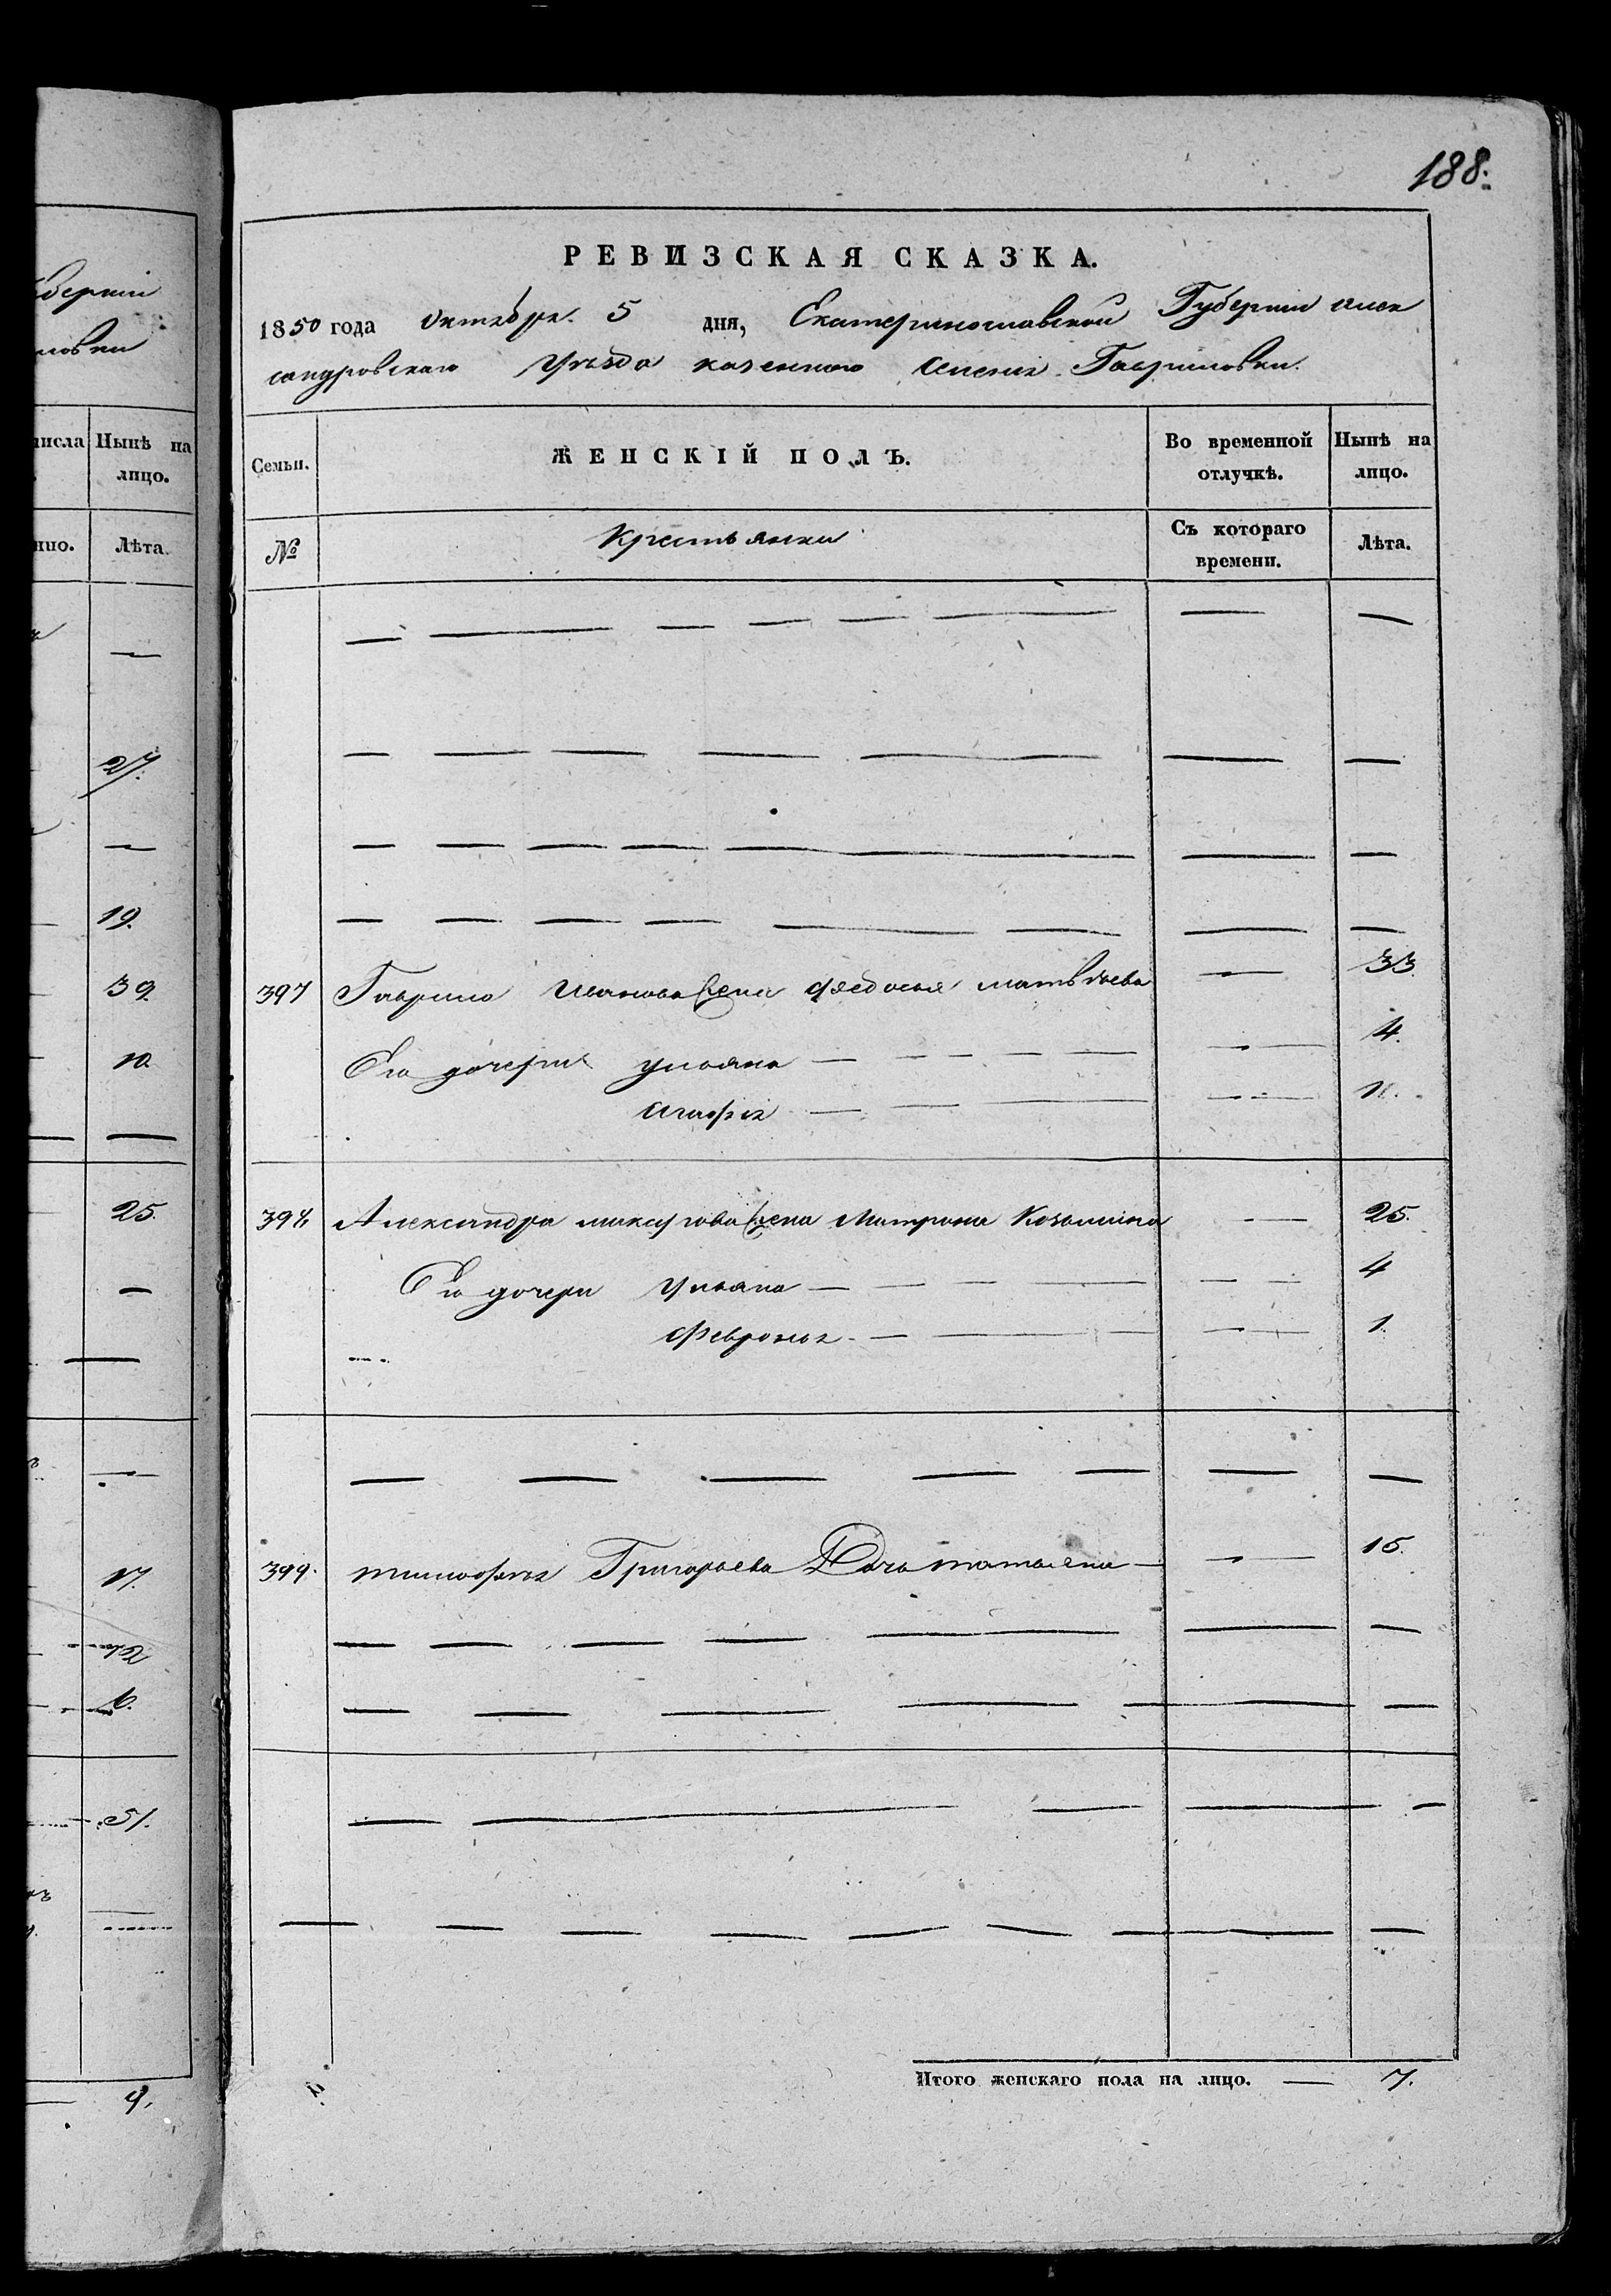 188.
РЕВИЗСКАЯ СКАЗКА.
1850 года октября 5 дня, Екатеринославской Губернии алек
сандровскаго уѣзда казеннаго селения Гавриловки.
Семьи. ЖЕНСКІЙ ПОЛЪ. Во временной отлучкѣ. Нынѣ на лицо.
№ Крестьянки Съ котораго времени. Лѣта.
397 Гаврило Иванова жена федосья матвѣева 33
Его дочери ульяна 4.
11.
398 Александра жена Матрона Козьмина 25.
Его дочери Ульяна 4
Феврония 1.
399. тимофея Григорьева Дочь татьяна 15.
Итого женскаго пола на лицо. 7.
берніи
ловки
числа Нынѣ на лицо.
нно. Лѣта.
27.
19.
39.
10.
25.
17.
12
6.
51.
9.